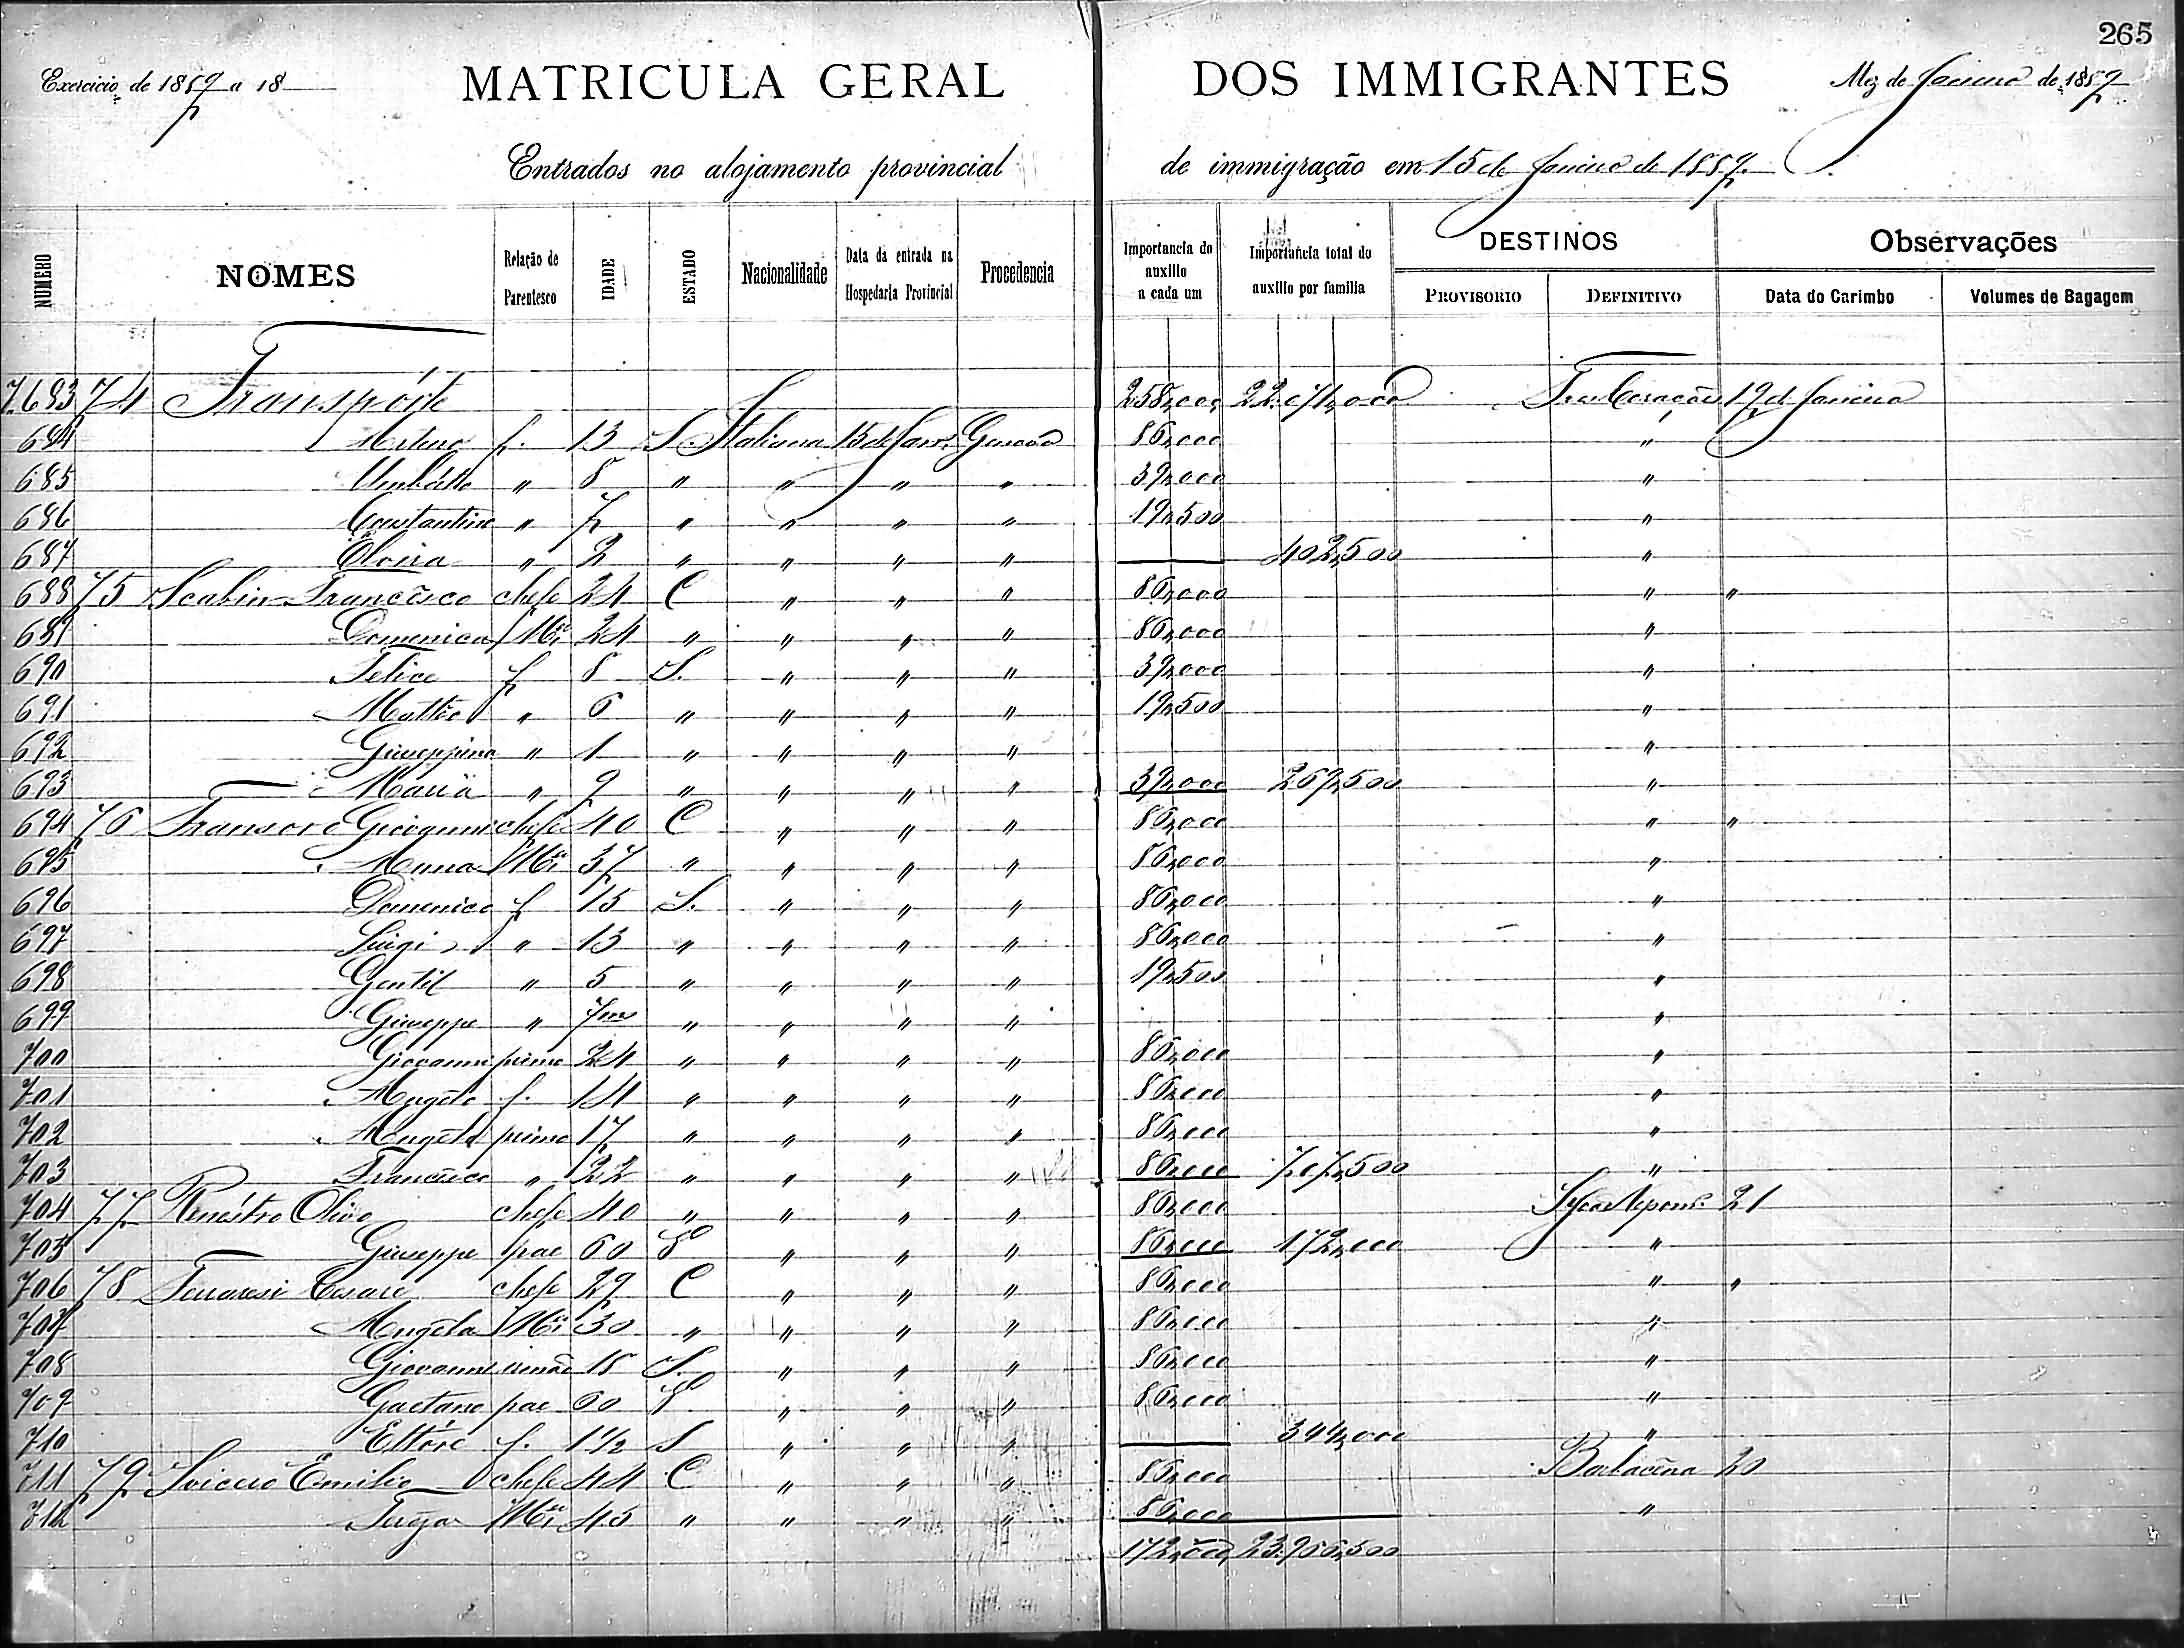 265
Exercicio de 1889 a 18
MATRICULA GERAL DOS IMMIGRANTES
Mez de Janeiro de 1889
Entrados no alojamento provincial de immigração em 15 de Janeiro de 1889.
NUMERO NOMES Relação de Parentesco IDADE ESTADO Nacionalidade Data da entrada na Hospedaria Provincial Procedencia Importancia do auxilio a cada um Importancia total do auxilio por familia DESTINOS PROVISORIO DEFINITIVO Observações Data do Carimbo Volumes de Bagagem
7.683 74 Transpórte 258,000 22: 071,000 19 de Janeiro
684 Arturo f. 13 S Italiana 15 de Janr. Genova 86,000 "
685 Umberto " 8 " " " " 39,000 "
686 Constantino " 7 " " " " 19,500 "
687 " 2 " " " " 402,500 "
688 75 Scabin Francisco chefe 24 C " " " 86,000 " "
689 Domenica Mer 24 " " " " 86,000 "
690 Felice f 8 S. " " " 39,000 "
691 Matteo " 6 " " " " 19,500 "
692 Giuseppina " 1 " " " " "
693 Maria " 9 " " " " 39,000 269,500 "
694 76 Giovanni chefe 40 C " " " 86,000 " "
695 Anna Mer 37 " " " " 86,000 "
696 Domenico f 15 S. " " " 86,000 "
697 Luigi " 13 " " " " 86,000 "
698 Gentil " 5 " " " " 19,500 "
699 Giuseppe " 7m " " " " "
700 Giovanni primo 24 " " " " 86,000 "
701 Angelo f. 14 " " " " 86,000 "
702 Angelo primo 17 " " " " 86,000 "
703 Francisco " 22 " " " " 86,000 707,500 "
704 77 Olivo chefe 40 " " " " 86,000 21
705 Giuseppe pae 60 Vo " " " 86,000 172,000 "
706 78 Ferraresi Cesare chefe 29 C " " " 86,000 " "
707 Angela Mer 30 " " " " 86,000 "
708 Giovanni irmão 18 S. " " " 86,000 "
709 Gaetano pae 60 Vo " " " 86,000 "
710 Ettóre f. 1 1/2 S " " " 344,000 "
711 79 Emilio chefe 44 C " " " 86,000 20
712 Mer 45 " " " " 86,000 "
172,000 23:966,500